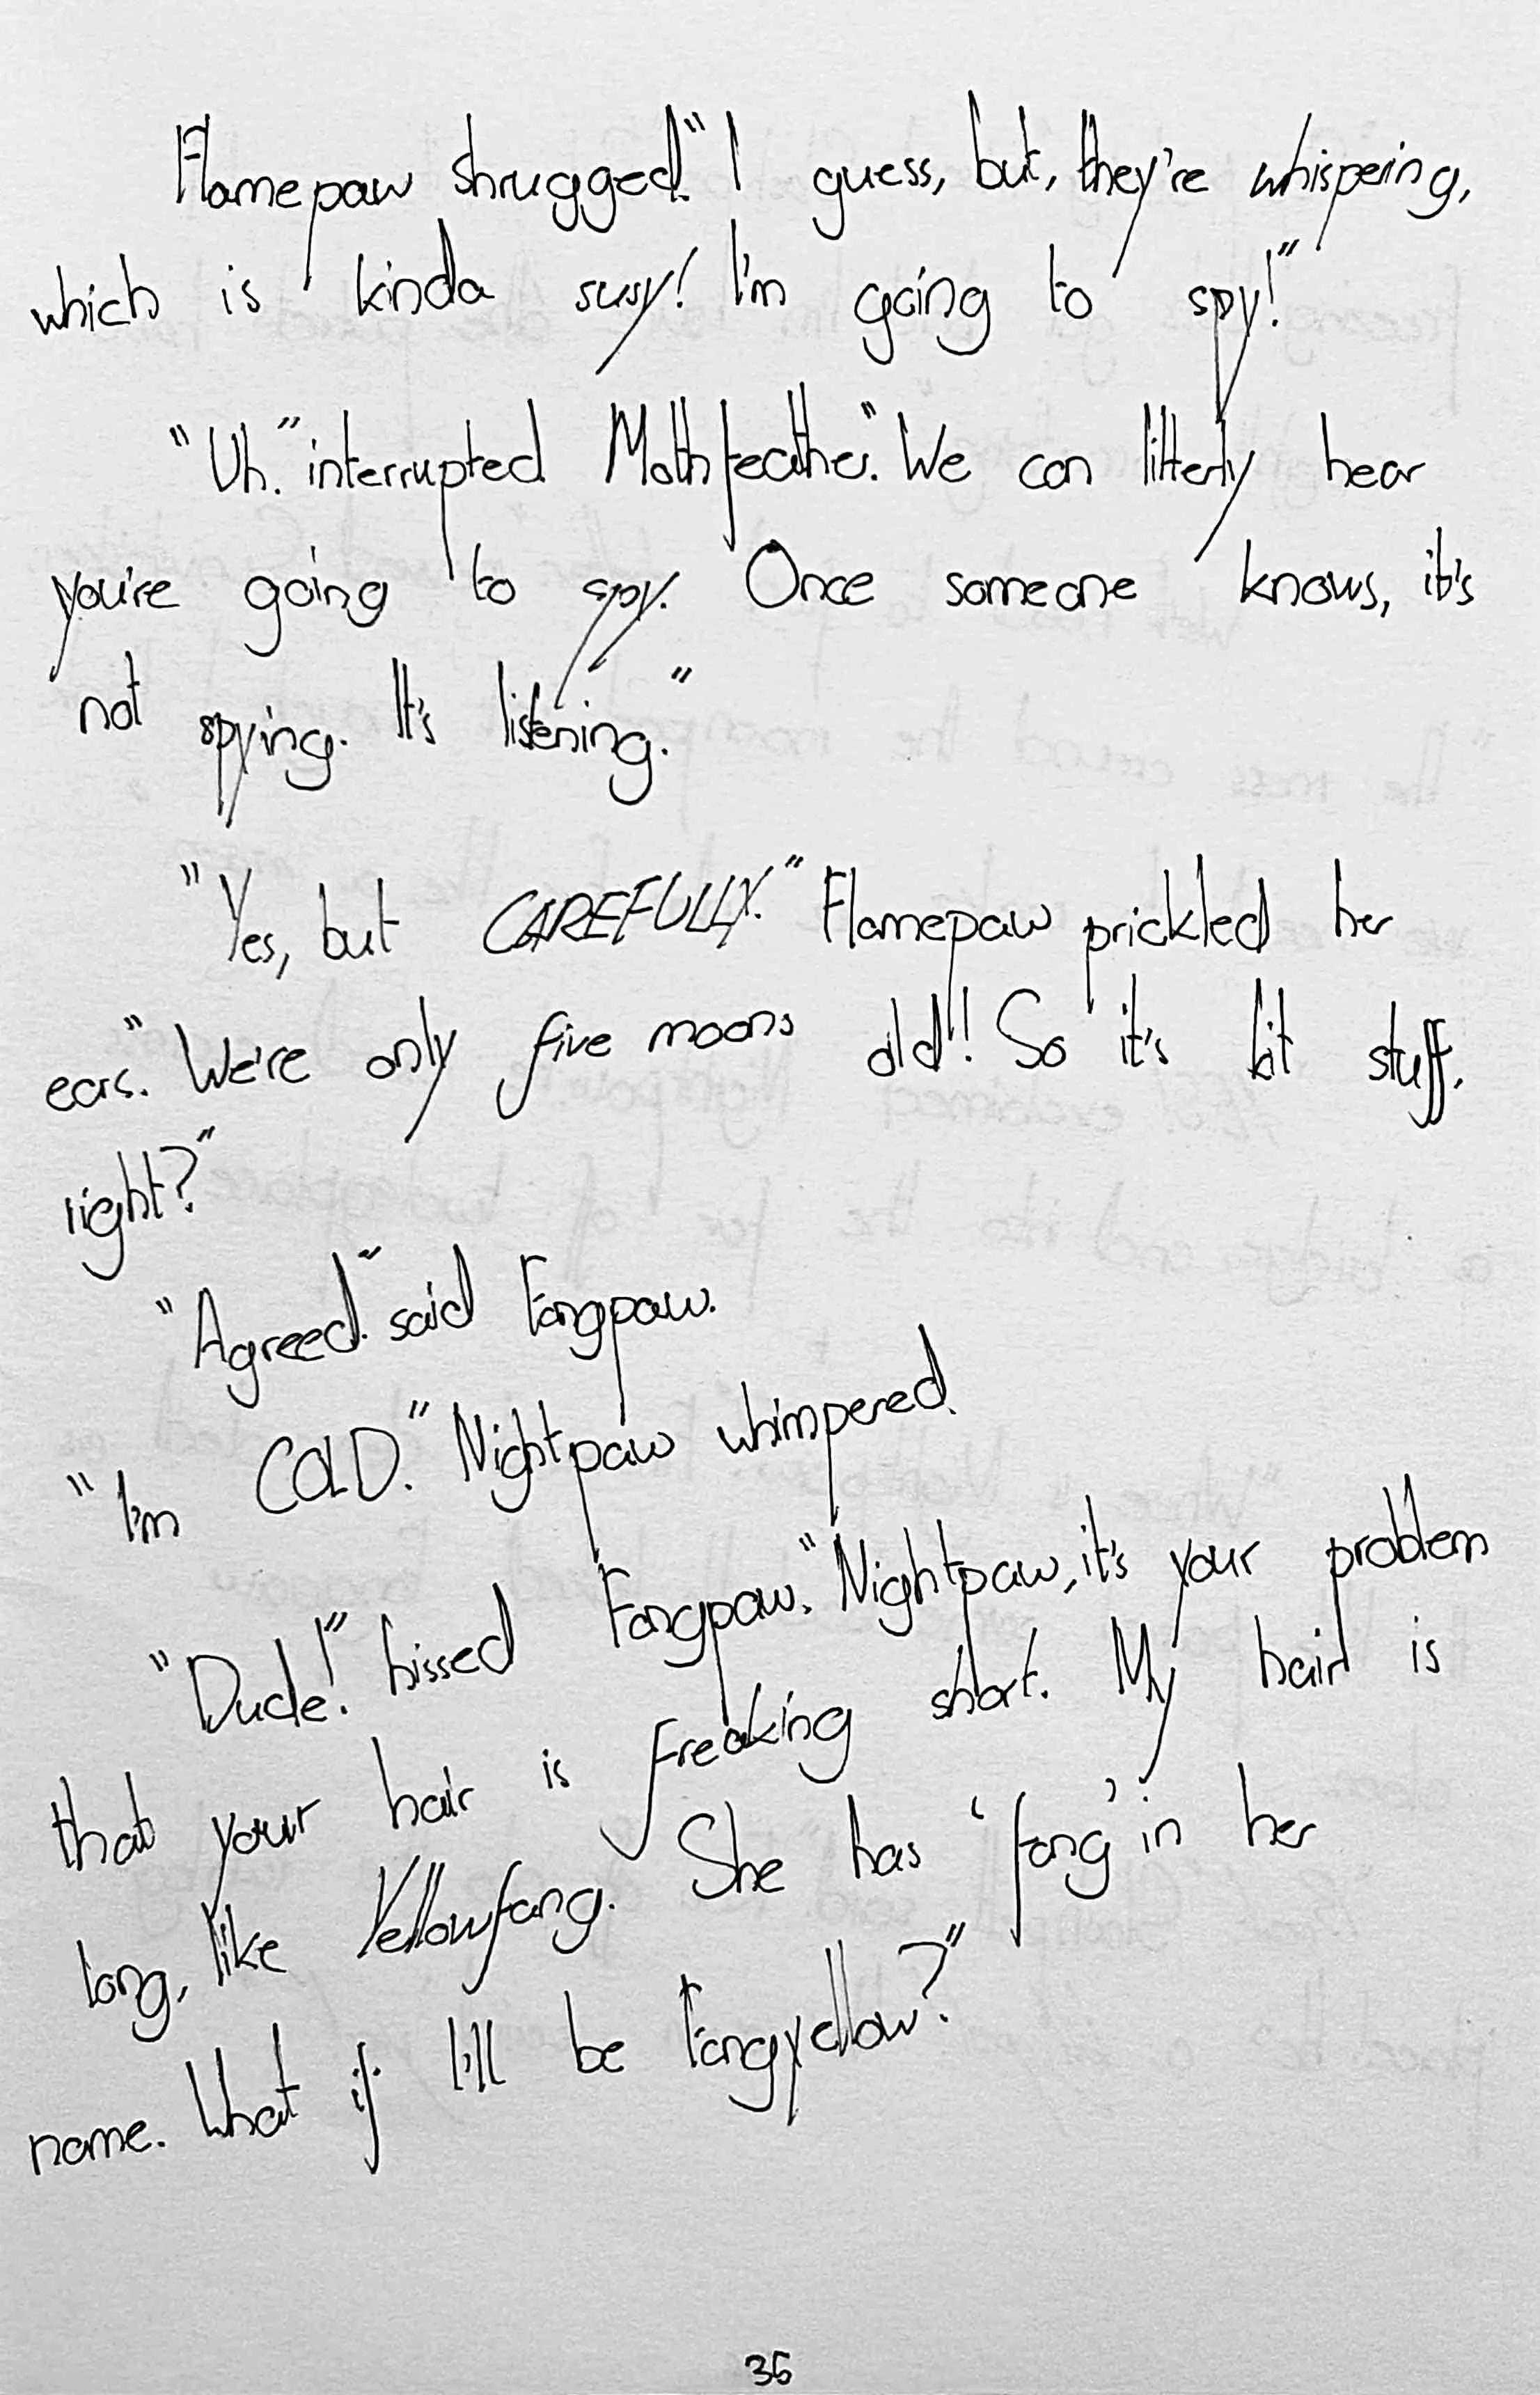 Flamepaw shrugged." I guess, but, they're whispering,
which is kinda susy! I'm going to spy!"
"Uh." interrupted Mothfeather." We can litterly hear
you're going to spy. Once someone knows, it's
not spying. It's listening."
"Yes, but CAREFULLY." Flamepaw prickled her
ears." We're only five moons old!! So it's kit stuff,
right?"
"Agreed." said Fangpaw.
"I'm COLD." Nightpaw whimpered.
"Dude!" hissed Fangpaw." Nightpaw, it's your problem
that your hair is freaking short. My hair is
long, like Yellowfang. She has 'fang' in her
name. What if I'll be Fangyellow?"
36